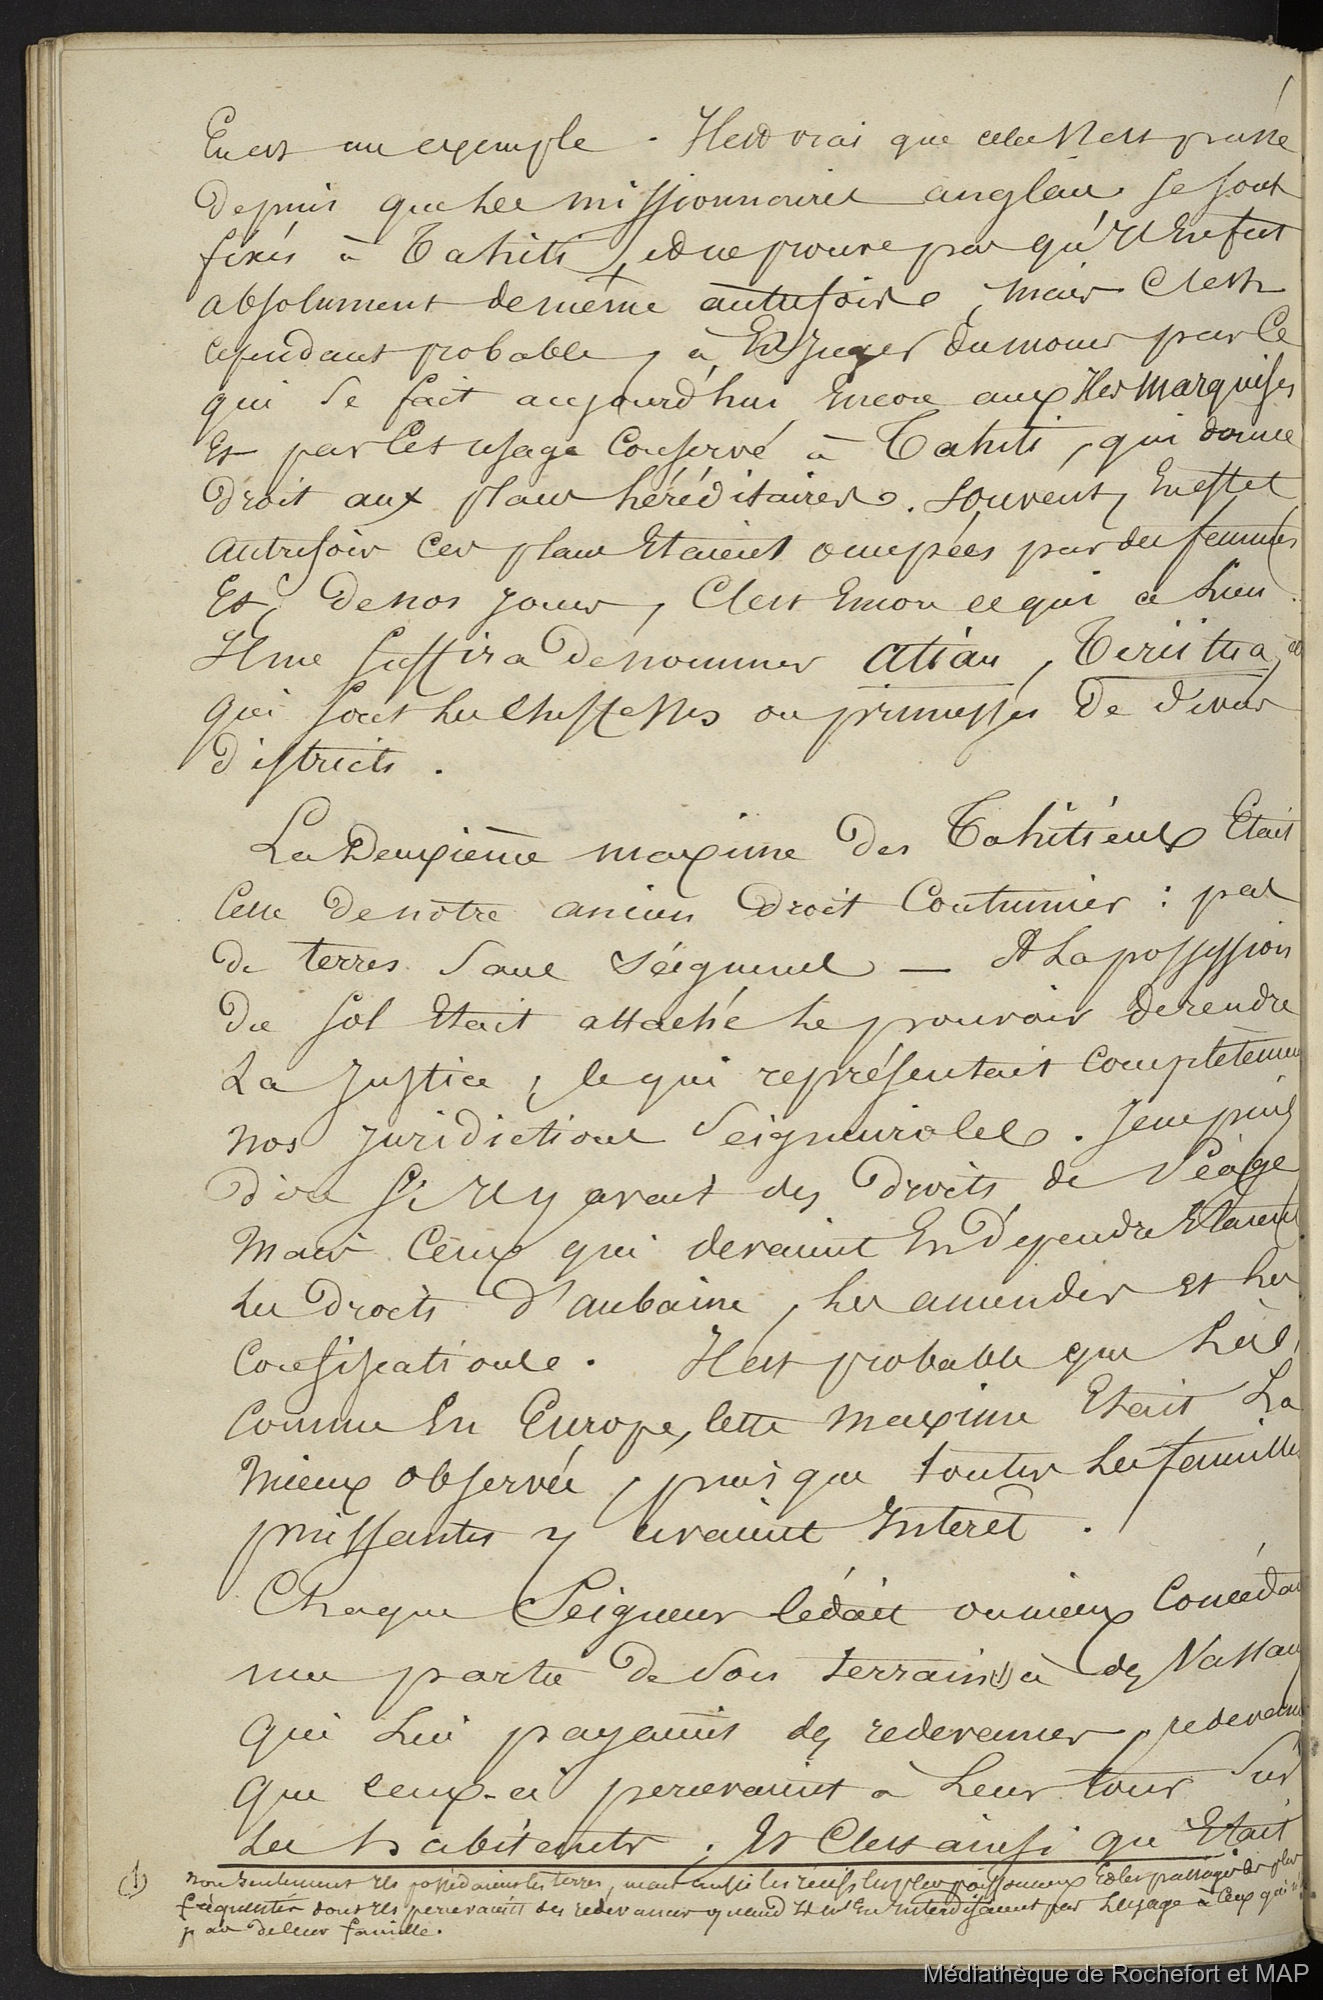 En est un exemple . Il est vrai que cela s'est passé
Depuis que les missionnaires anglais se sont
fixés à Tahiti, et ne prouve pas qu'il en fut
absolument de même autrefois, mais c'est
cependant probable, à en juger du moins par ce
qui se fait aujourd'hui encore aux Iles Marquises
Et par cet usage conservé à Tahiti, qui donne
Droit aux places héréditaires. Souvent, en effet
autrefois ces places étaient occupées par des femmes
Et, de nos jours, c'est encore ce qui a lieu.
Il me suffira de nommer Atiau, Teriitua,
qui sont les cheffesses ou princesses de divers
districts .
La Deuxième maxime des Tahitiens Etait
celle de notre ancien Droit Coutumier : pas
de terres sans seigneur — A la possession
Du sol Etait attaché le pouvoir de rendre
La Justice, ce qui représentait complètement
nos juridictions seigneuriales. Je ne puis
dire s'il y avait des droits de Péage
Mais ceux qui devaient En Dépendre Etaient
les Droits d'aubaine, les amendes et les
Confiscations. Il est probable que là,
Comme En Europe, cette maxime Etait La
Mieux observée, puisque toutes les familles
puissantes y avaient Intérêt .
Chaque Seigneur cédait ou mieux Concédait
une partie de son terrain (1) à des Vassaux
qui Lui payaient des redevances, redevances
que ceux-ci percevaient à Leur tour Sur
Les habitants . Et C'est ainsi qu'Etait
(1) non seulement ils possédaient les terres, mais aussi les récifs les plus poissonneux Et les passages les plus
fréquentés dont ils percevaient des redevances quand Ils n'En interdisaient pas l'usage à ceux qui
pas de leur famille.
Médiathèque de Rochefort et MAP